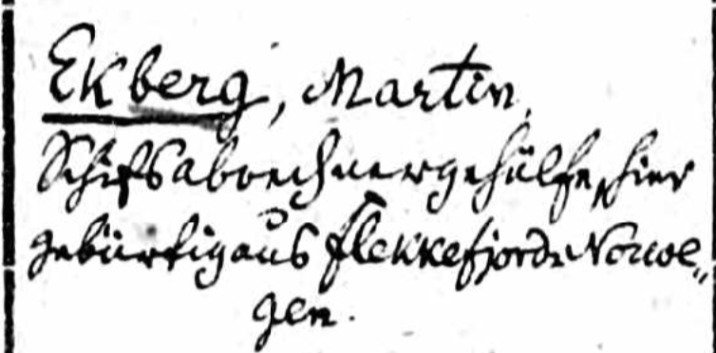 Ekberg, Martin,
Schifsabrechnergehülfe, hier
gebürtig aus Flekkefjord Norwe„
gen.